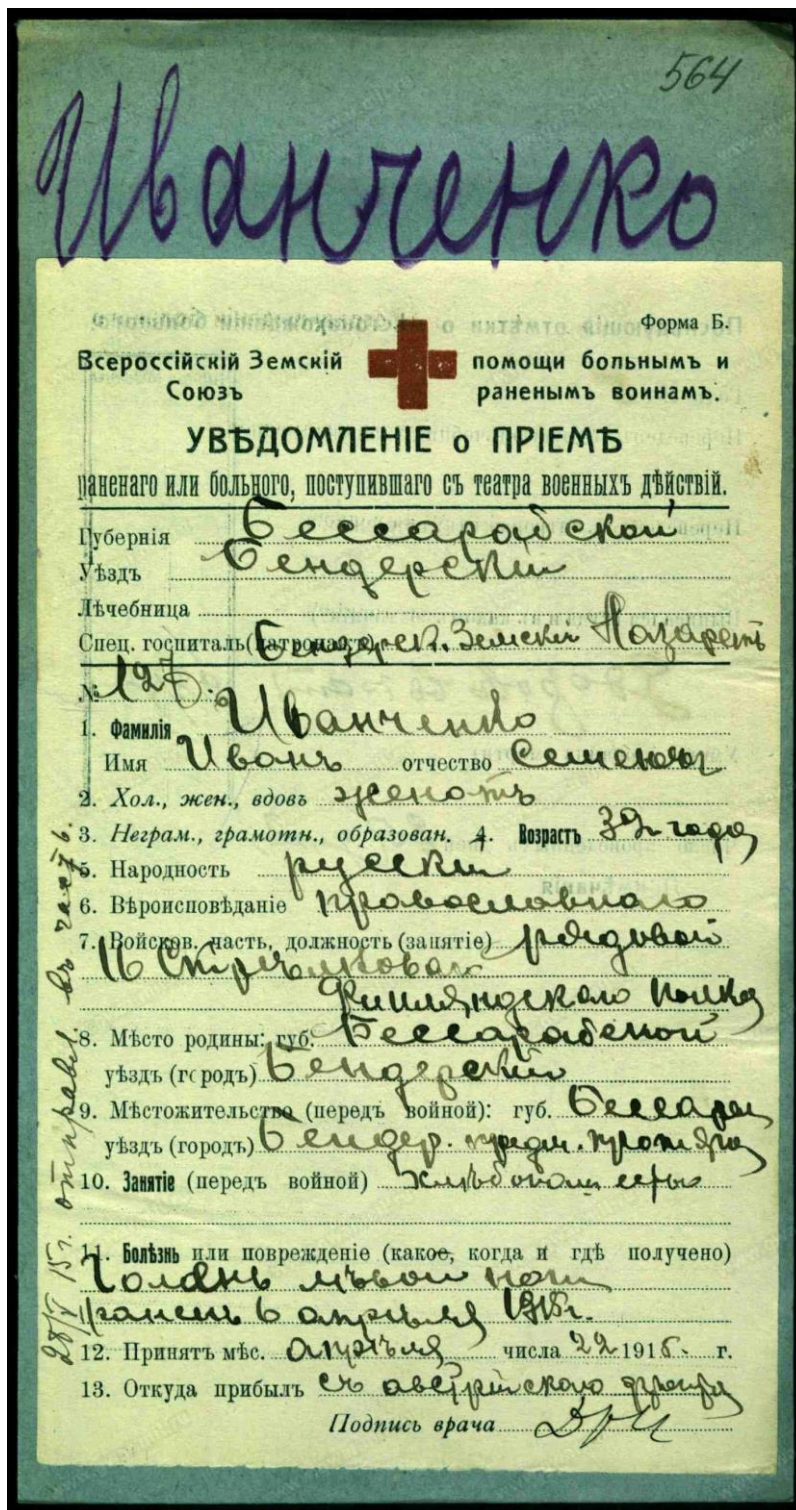 564
Иванченко
Форма Б.
Всероссійскій Земскій
Союзъ
помощи больнымъ и
раненымъ воинамъ.
УВѢДОМЛЕНІЕ о ПРІЕМѢ
раненаго или больного, поступившаго съ театра военныхъ дѣйствій.
Губернія Бессарабской
Уѣздъ Бендерскій
Лѣчебница
Спец. госпиталь (патронатъ) Бендерск. Земскій Лазаретъ
№ 127
1. Фамилія Иванченко
Имя Иванъ отчество Семеновъ
2. Хол., жен., вдовъ женатъ
3. Неграм., грамотн., образован. 4. Возрастъ 32 года
5. Народность русскій
6. Вѣроисповѣданіе православнаго
7. Войсков. часть, должность (занятіе) рядовой
Стрѣлковаго
Финляндскаго полка
8. Мѣсто родины: губ. Бессарабской
уѣздъ (городъ) Бендерскій
9. Мѣстожительство (передъ войной): губ. Бессараб
уѣздъ (городъ) Бендер.
10. Занятіе (передъ войной)
11. Болѣзнь или поврежденіе (какое, когда и гдѣ получено)
Голень лѣвой ноги
раненъ 6 апрѣля 1915г.
12. Принятъ мѣс. апрѣля числа 22 1915. г.
13. Откуда прибылъ съ австрійскаго фронта
Подпись врача
28/V 15г. отправл въ часть.